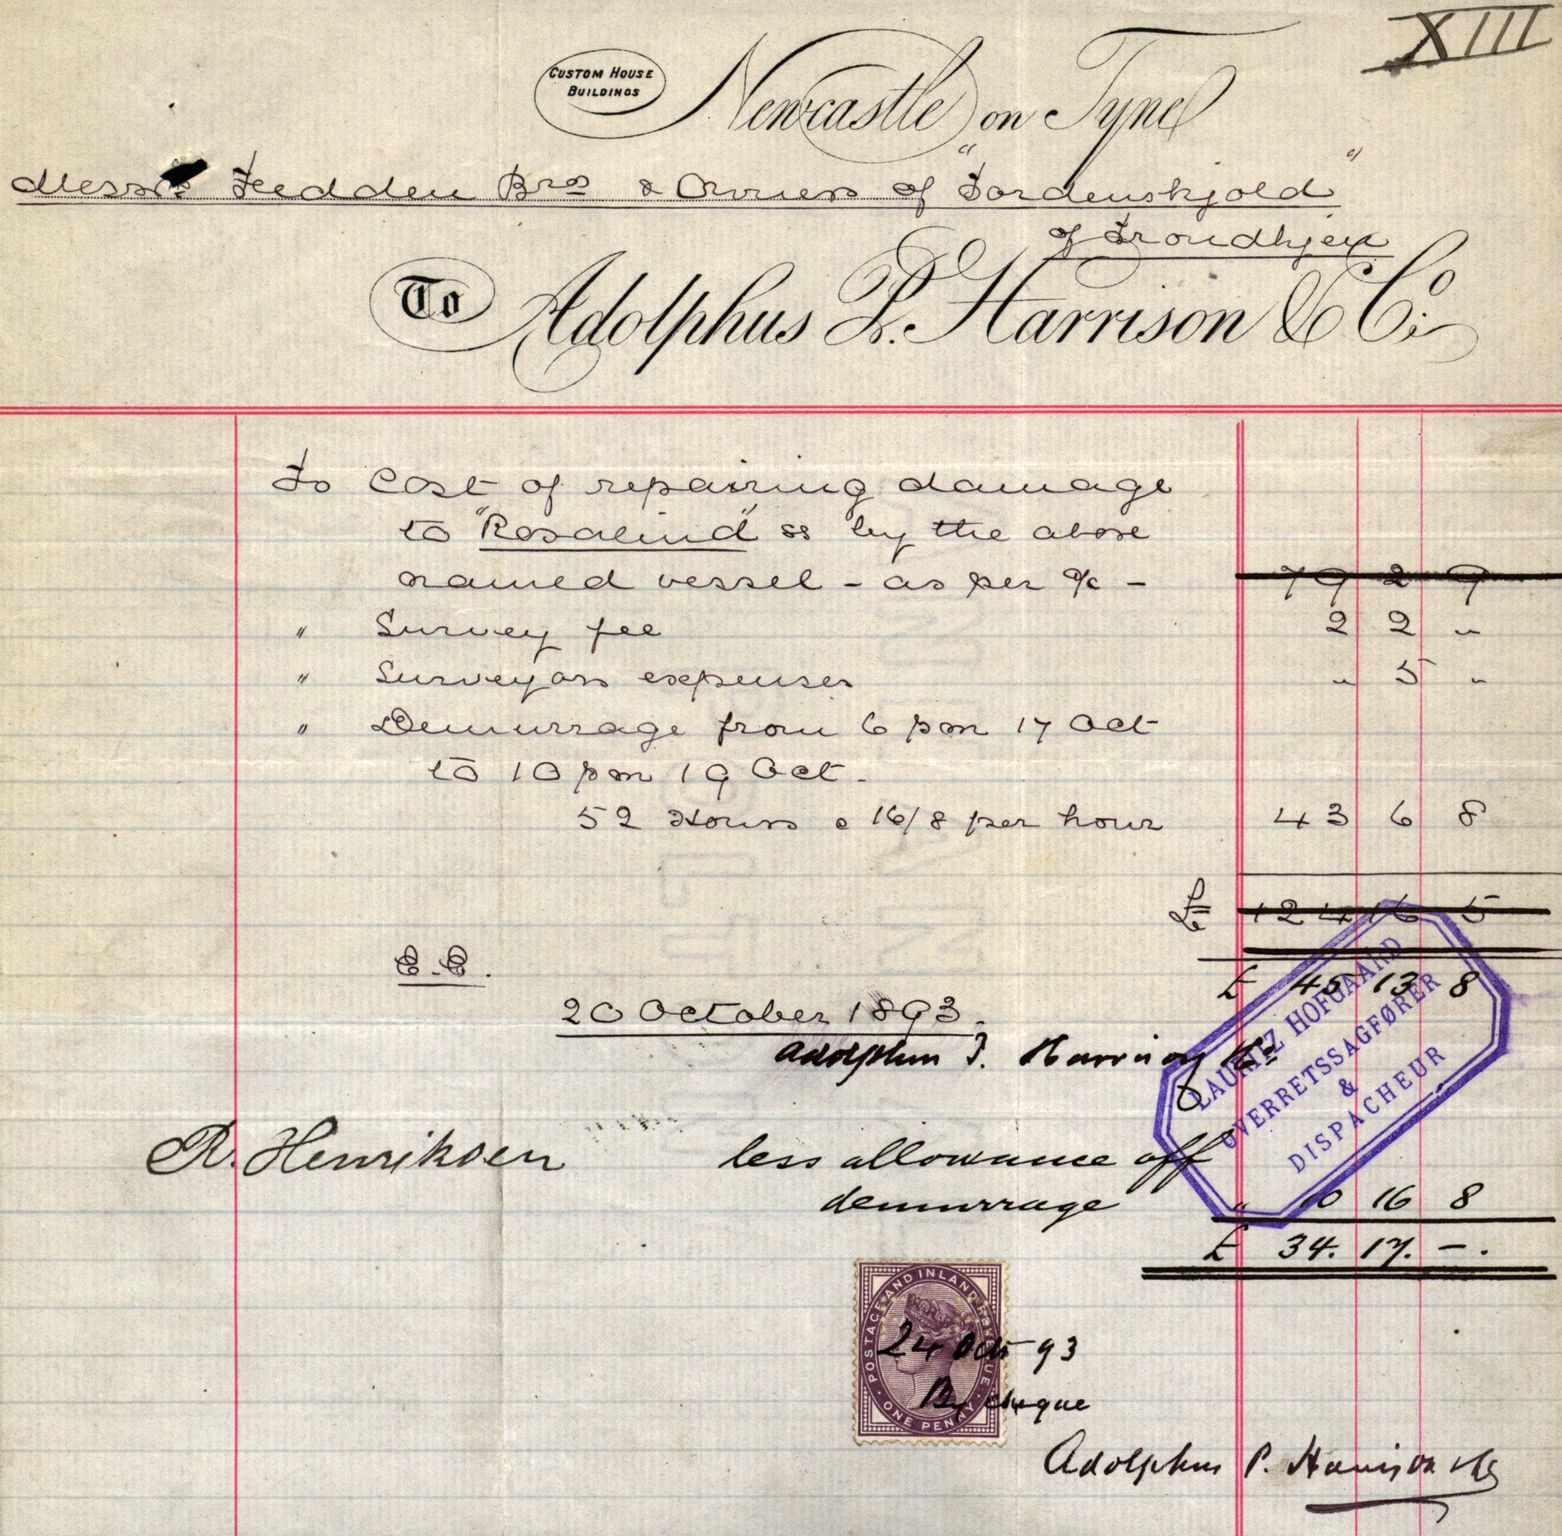 XIII
CUSTOM HOUSE
BUILDINGS
Newcastle on Tyne
Messrs Fedden Bros & Owners of "Tordenskjold"
of Trondhjem
To Adolphus P. Harrison & Co.
To Cost of repairing damage
to "Rosalind" ss by the above
named vessel - as per a/c - 79 2 9
" Survey fee 2 2 "
" Surveyors expenses " 5 "
" Demurrage from 6 pm 17 Oct
to 10 pm 19 Oct.
52 Hours @ 16/8 per hour 43 6 8
£ 124 16 5
E.E.
£ 45 13 8
20 October 1893.
Adolphus P. Harrison & Co
LAURITZ HOFGAARD
OVERRETSSAGFØRER
&
DISPACHEUR
R. Henriksen less allowance off
demurrage " 10 16 8
£ 34. 17. -.
POSTAGE AND INLAND REVENUE
ONE PENNY
24 Oct 93
By cheque
Adolphus P. Harrison & Co